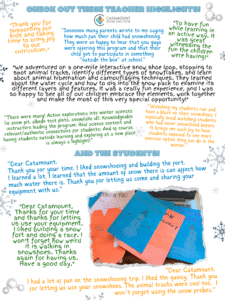 CHECK OUT THESE TEACHING HIGHLIGHTS!
CATAMOUNT
"Thank you for
supporting our
kids and taking
time to bring joy
to our
curriculum."
"Sooooooo many parents wrote to me saying
how much fun their child had snowshoeing.
They were so happy to hear that you guys
were offering this program and that their
child got to participate in something
'outside the box' at school."
"To have fun
while learning in
an active way. It
was great
witnessing the
fun the children
were having!"
"We adventured on a one-mile interactive snow shoe loop, stopping to
spot animal tracks, identify different types of snowflakes, and learn
about animal hibernation and camouflaging techniques. They learned
about the water cycle and how to dig into the snow pack to examine the
different layers and features. It was a really fun experience, and I was
so happy to see all of our children embrace the elements, work together
and make the most of this very special opportunity!"
"There were many! Active explorations into winter wonders
Knowledgeable
instructors leading the program. Real science content and
relevant/authentic connections for students. And of course,
having students outside learning and exploring at a new place
is always a highlight!"
"Watching my students run and
have a blast on their snowshoes. I
especially loved watching students
who had never snowshoed before.
It brings me such joy to have
students exposed to new snow
AND THE STUDENTS!
"Dear Catamount,
Thank you for your time. I liked snowshoeing and building the fort.
I learned a lot. I learned that the amount of snow there is can affect how
much water there is. Thank you for letting us come and sharing your
equipment with us."
"Dear Catamount,
Thanks for your time
and thanks for letting
us use your equipment.
I liked building a snow
fort and doing a race. I
won't forget how weird
it is walking in
snowshoes. Thanks
again for having us.
Have a good day."
"Dear Catamount,
I had a lot of fun on the snowshoeing trip. I liked the games. Thank you
for letting us use your snowshoes. The animal tracks were cool too. I
won't forget using the snow probes."